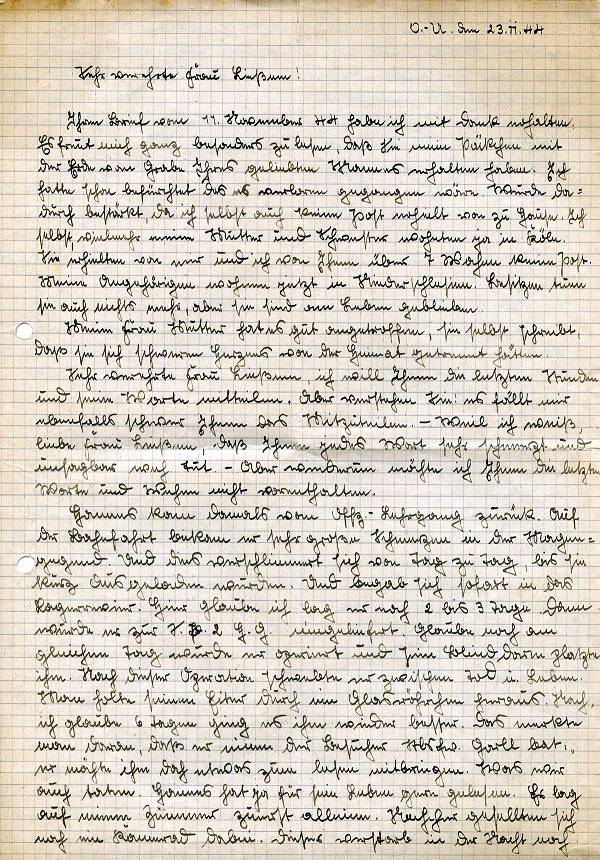 O.-U. den 23.11.44
Sehr verehrte Frau Ließem!
Ihren Brief vom 11. November 44 habe ich mit Dank erhalten.
Es freut mich ganz besonders zu lesen, daß Sie mein Päckchen mit
der Erde vom Grabe Ihres geliebten Mannes erhalten haben. Ich
hatte schon befürchtet das es verloren gegangen wäre. Würde da=
durch bestärkt, da ich selbst auch keine Post erhielt von zu Hause. Ich
selbst, vielmehr meine Mutter und Schwester wohnten ja in Köln.
Sie erhielten von mir und ich von Ihnen über 7 Wochen keine Post.
Meine Angehörigen wohnen jetzt in Niederschlesien. Besitzen tuen
sie auch nichts mehr, aber sie sind am Leben geblieben.
Meine Frau Mutter hat es gut angetroffen, sie selbst schreibt,
daß sie sich schweren Herzens von der Heimat getrennt hätten.
Sehr verehrte Frau Ließem, ich will Ihnen die letzten Stunden
und seine Worte mitteilen. Aber verstehen Sie: es fällt mir
ebenfalls schwer Ihnen das Mitzuteilen. – Weil ich weiß,
liebe Frau Ließem, daß Ihnen jedes Wort sehr schmerzt und
unsagbar weh tut. – Aber wiederum möchte ich Ihnen die letzten
Worte und Wochen nicht vorenthalten.
Hannes kam damals vom Uffz.-Lehrgang zurück. Auf
der Bahnfahrt bekam er sehr große Schmerzen in der Magen=
gegend. Und dies verschlimmert sich von Tag zu Tag, bis sie
kurz ausgeladen wurden. Und begab sich sofort in das
Hier glaube ich lag er noch 2 bis 3 Tage. Dann
wurde er zur 2 G.G. eingeliefert. Glaube noch am
gleichen Tag wurde er operiert und sein Blinddarm platzte
ihm. Nach dieser Operation schwebte er zwischen Tod u. Leben.
Man holte seinen Eiter durch ein Glasröhrchen heraus. Nach,
ich glaube 6 Tagen ging es ihm wieder besser. Das merkte
man daran, daß er einen der Besucher bat:„
er möchte ihm doch etwas zum lesen mitbringen. Was wir
auch taten. Hannes hat ja für sein Leben gern gelesen. Er lag
auf einem Zimmer zuerst alleine. Nachher gesellten sich
noch ein Kamerad dabei. Dieser verstarb in der Nacht noch